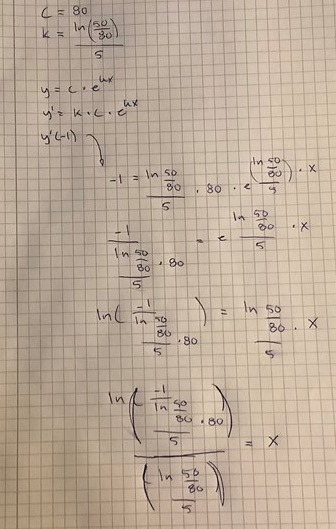 C = 80
k = ln(50/80)/5
y = c · e^kx
y' = k · c · e^kx
y'(-1)
-1 = (ln 50/80)/5 · 80 · e^((ln 50/80)/5) · x
-1/((ln 50/80)/5 · 80) = e^((ln 50/80)/5 · x)
ln(-1/((ln 50/80)/5 · 80)) = (ln 50/80)/5 · x
ln(-1/((ln 50/80)/5 · 80))/((ln 50/80)/5) = x